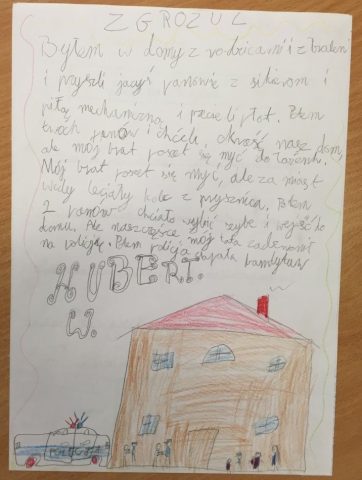 ZGROZUL
Byłem w domy z rodzicami i z bratem
i pryszli jacyś panowie z sikierom i
piłą mechaniczną i pścieli płot. Potem
trzech panów i chcieli, okraść nasz dom,
ale mój brat poszet się myć do łazienki.
Mój brat poszet się myć, ale za miast
wody leciały kolce z prysznica. Potem
2 panów chciało wybić szybe i wejść do
domu. Ale naszczęście mój tata zadzwonił
na policję. Potem policja złapała bandytów
HUBERT.
W.
POLICJA